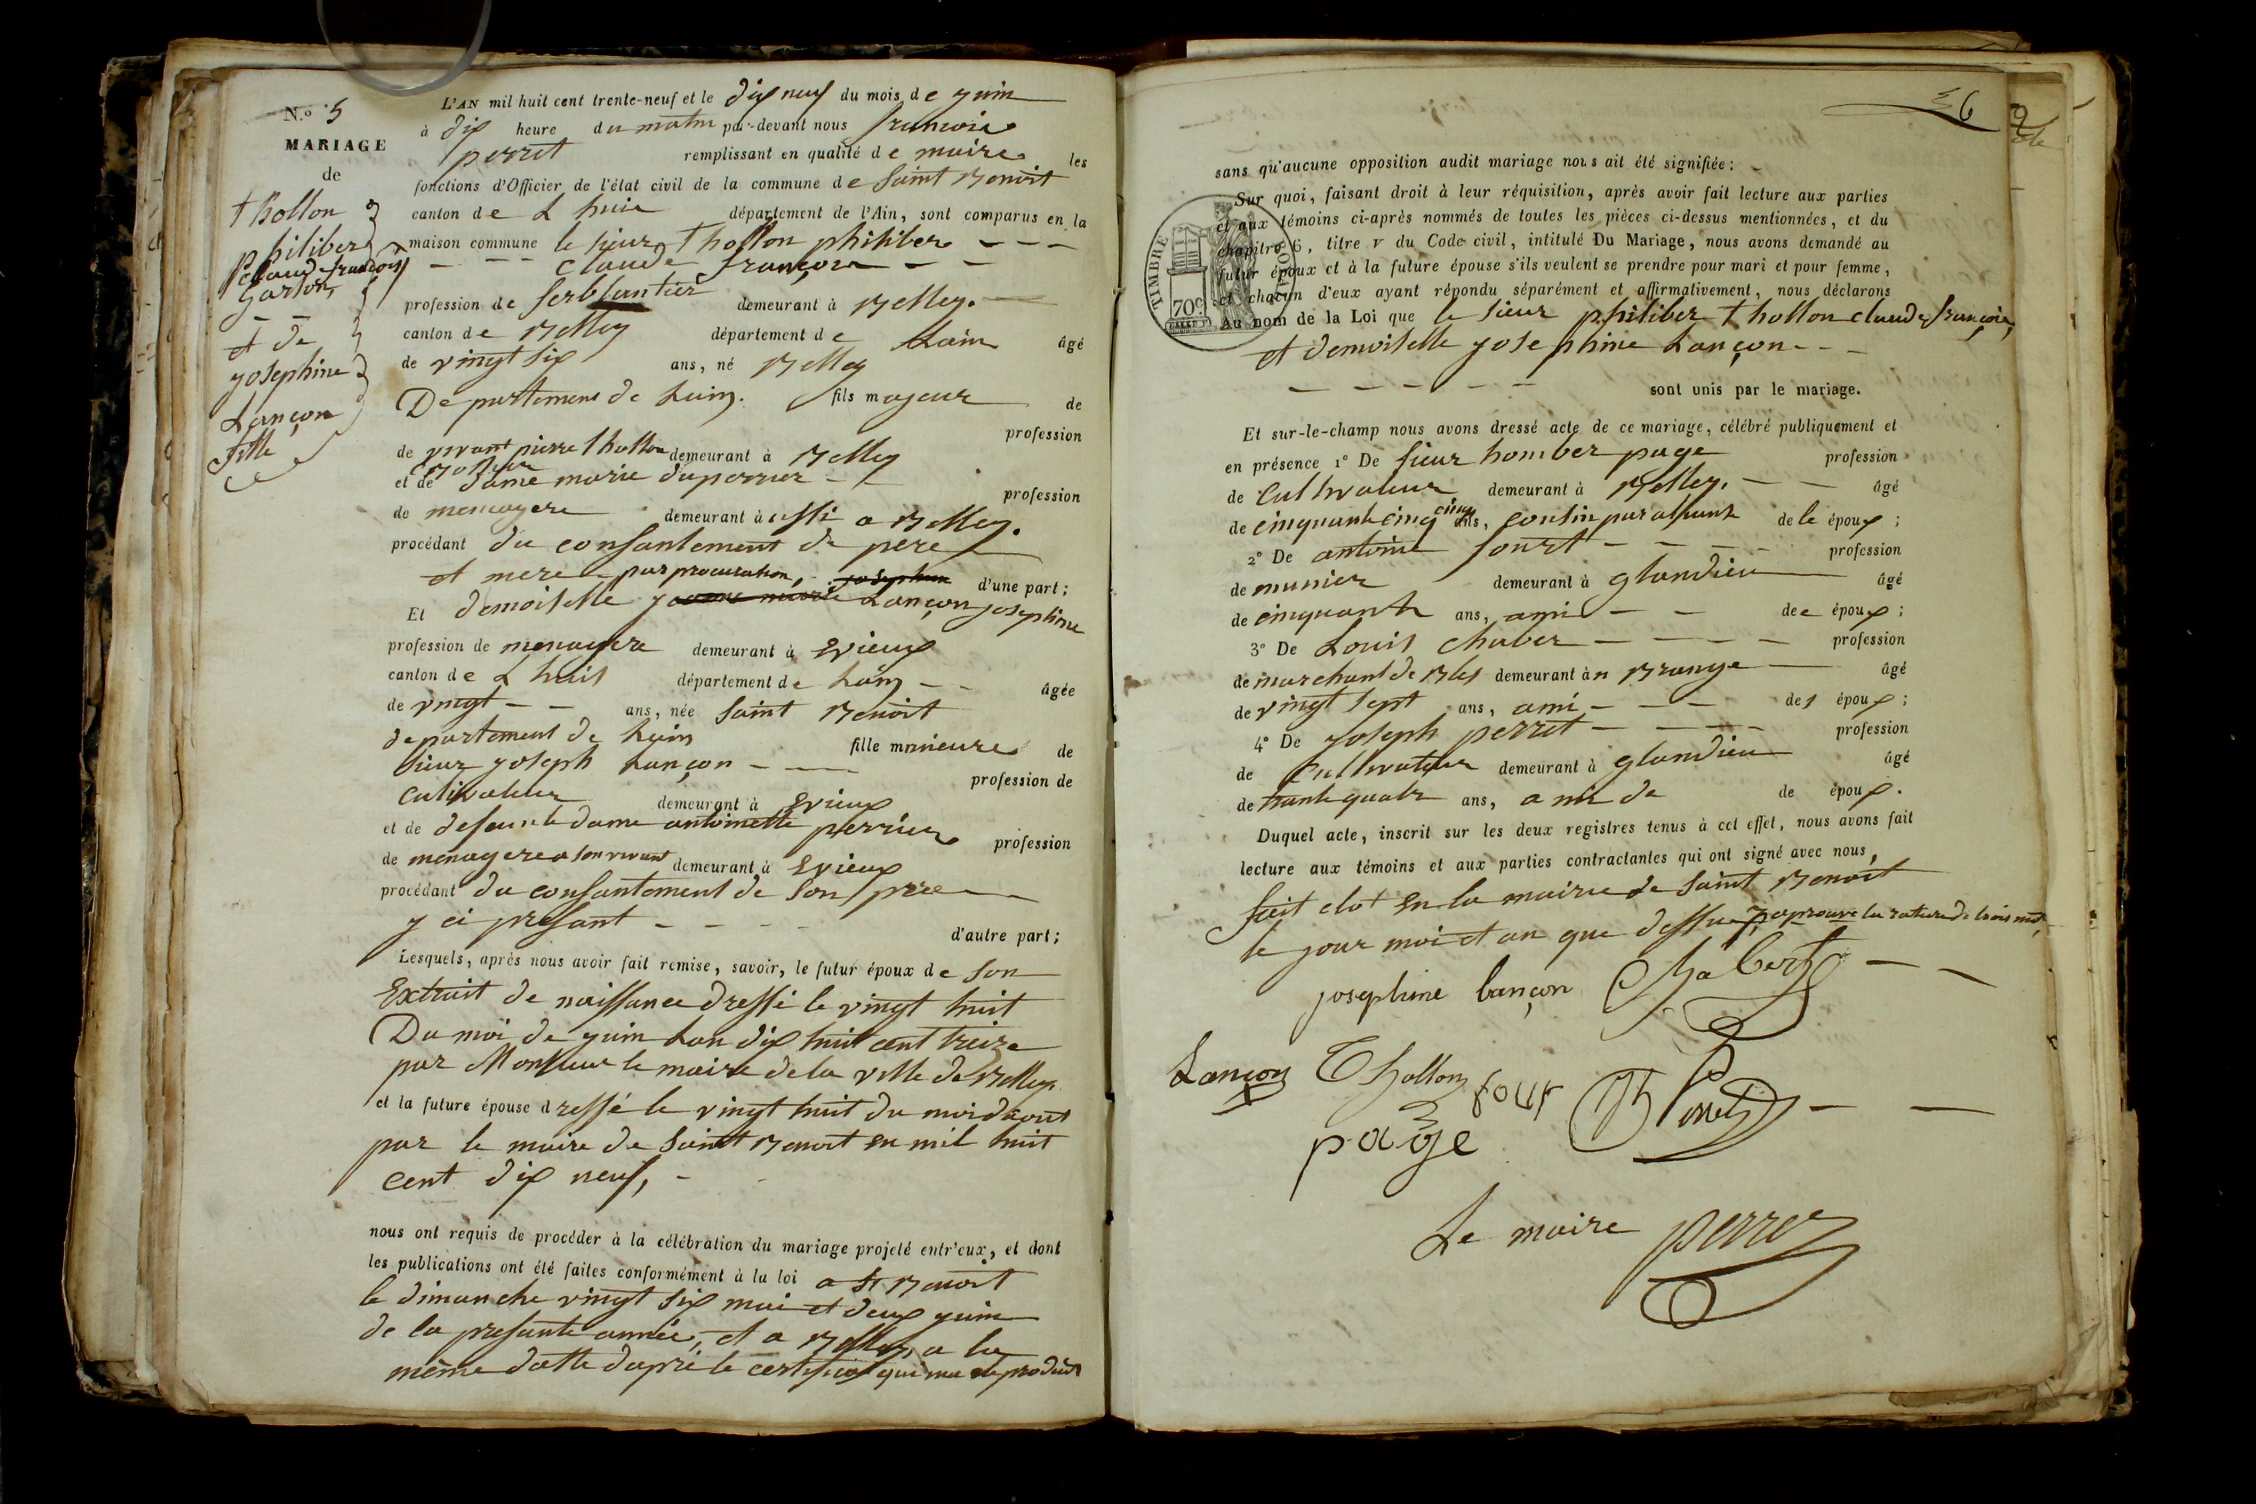 N.º 5
MARIAGE
de
thollon
philiber
claude françois
garson
et de
josephine
Lançon
fille
L'AN mil huit cent trente-neuf et le dix neuf du mois de juin
à dix heure du matin par-devant nous françois
perret remplissant en qualité de maire les
fonctions d'Officier de l'état civil de la commune de saint Benoit
canton de Lhuis département de l'Ain, sont comparus en la
maison commune le sieur thollon philiber
claude françois
profession de ferblantier demeurant à Belley.
canton de Belley département de Lain âgé
de vingt six ans, né Belley
Departement de Lain. fils majeur de
profession
de vivant pierre thollon demeurant à Belley
et de dame marie duperrier
profession
de menagere demeurant à assi a Belley.
procédant du consantement de pere
et mere par procuration, josephine d'une part;
Et demoiselle Lançon josephine
profession de menagere demeurant à Evieux
canton de Lhuis département de Lain âgée
de vingt ans, née saint Benoit
departement de Lain fille mineure de
sieur joseph Lançon
profession de
cultivateur demeurant à Evieux
et de defunte dame antoinette perrier
profession
de menagere a son vivant demeurant à Evieux
procédant du consantement de son pere
y ci presant
d'autre part;
Lesquels, après nous avoir fait remise, savoir, le futur époux de son
Extrait de naissance dressé le vingt huit
Du moi de juin Lan dix huit cent treize
par Monsieur le maire de la ville de Belley
et la future épouse dressé le vingt huit du moi daout
par le maire de saint Benoit en mil huit
cent dix neuf,
nous ont requis de procéder à la célébration du mariage projeté entr'eux, et dont
les publications ont été faites conformément à la loi a st Benoit
le dimanche vingt six mai et deux juin
de la presante année, et a Belley, a la
même datte dapré le certificat qui ma ete produit
36
sans qu'aucune opposition audit mariage nous ait été signifiée:
Sur quoi, faisant droit à leur réquisition, après avoir fait lecture aux parties
et aux témoins ci-après nommés de toutes les pièces ci-dessus mentionnées, et du
chapitre 6, titre v du Code civil, intitulé Du Mariage, nous avons demandé au
futur époux et à la future épouse s'ils veulent se prendre pour mari et pour femme,
et chacun d'eux ayant répondu séparément et affirmativement, nous déclarons
TIMBRE ROYAL
70c.
Au nom de la Loi que le sieur philiber thollon claude françois,
et demoiselle josephine Lançon
sont unis par le mariage.
Et sur-le-champ nous avons dressé acte de ce mariage, célébré publiquement et
en présence 1º De sieur homber page profession
de cultivateur demeurant à Belley. âgé
de cinquante cinq ans, cousin par aliance de le époux;
2º De antoine fourt profession
de munier demeurant à glandieu âgé
de cinquante ans, ami de e époux;
3º De Louis chaber profession
de marchant de Bles demeurant à n Brange âgé
de vingt sept ans, ami des époux;
4º De joseph perret profession
de Cultivateur demeurant à glandieu âgé
de trante quatr ans, ami de de époux.
Duquel acte, inscrit sur les deux registres tenus à cet effet, nous avons fait
lecture aux témoins et aux parties contractantes qui ont signé avec nous,
fait clot en la mairie de saint Benoit
le jour moi et an que dessus, japrouve la rature de trois mot,
josephine lançon Chabert
Lançon Thollon
four
page
Le maire perret